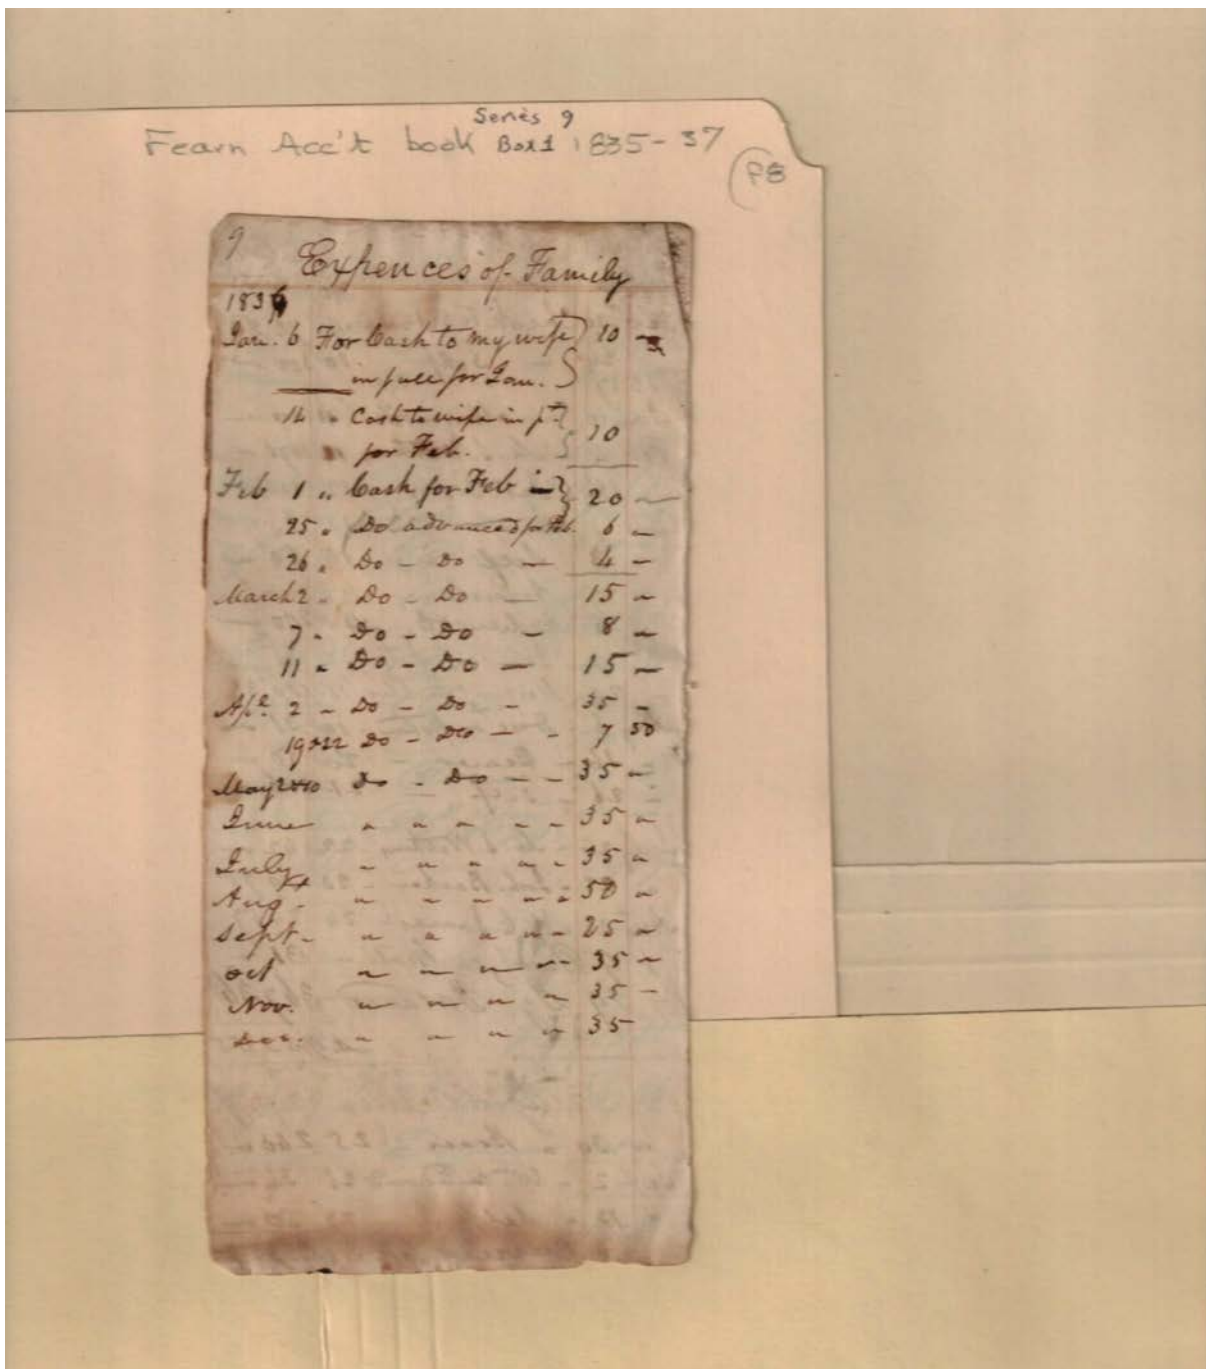 Series 9
Fearn Acc't book Box 1 1835-37
P8
9
Expences of Family
183
Jan. 6 For Cash to my wife 10 —
in full for Jan.
14 " Cash to wife in pt
for Feb. 10
Feb 1 " Cash for Feb in 20 —
25 " Do advanced for Feb. 6 —
26 " Do - Do — 4 —
March 2 " Do - Do — 15 —
7 " Do - Do — 8 —
11 " Do - Do — 15 —
Apl. 2 - Do - Do - 35 -
19 22 Do - Do - - 7 50
May Do - Do - - 35 -
June " " " - - 35 "
July " " " " - 35 "
Augt. " " " " " 50 "
Sept. " " " " - 25 "
Oct " " " " - 35 "
Nov. " " " " 35 -
Dec. " " " " 35